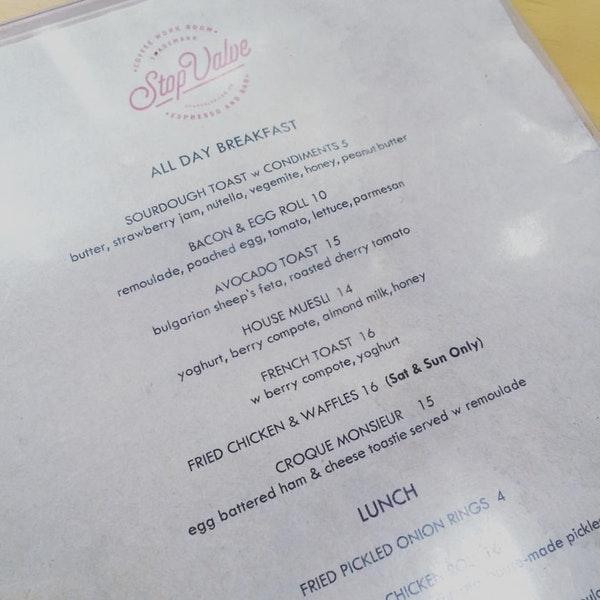 COFFEE WORK ROOM
TRADEMARK
Stop Valve
ESPRESSO AND BAR
ALL DAY BREAKFAST
SOURDOUGH TOAST w CONDIMENTS 5
butter, strawberry jam, nutella, vegemite, honey, peanut butter
BACON & EGG ROLL 10
remoulade, poached egg, tomato, lettuce, parmesan
AVOCADO TOAST 15
bulgarian sheep's feta, roasted cherry tomato
HOUSE MUESLI 14
yoghurt, berry compote, almond milk, honey
FRENCH TOAST 16
w berry compote, yoghurt
FRIED CHICKEN & WAFFLES 16 (Sat & Sun Only)
CROQUE MONSIEUR 15
egg battered ham & cheese toastie served w remoulade
LUNCH
FRIED PICKLED ONION RINGS 4
CHICKEN 16
-made pickles